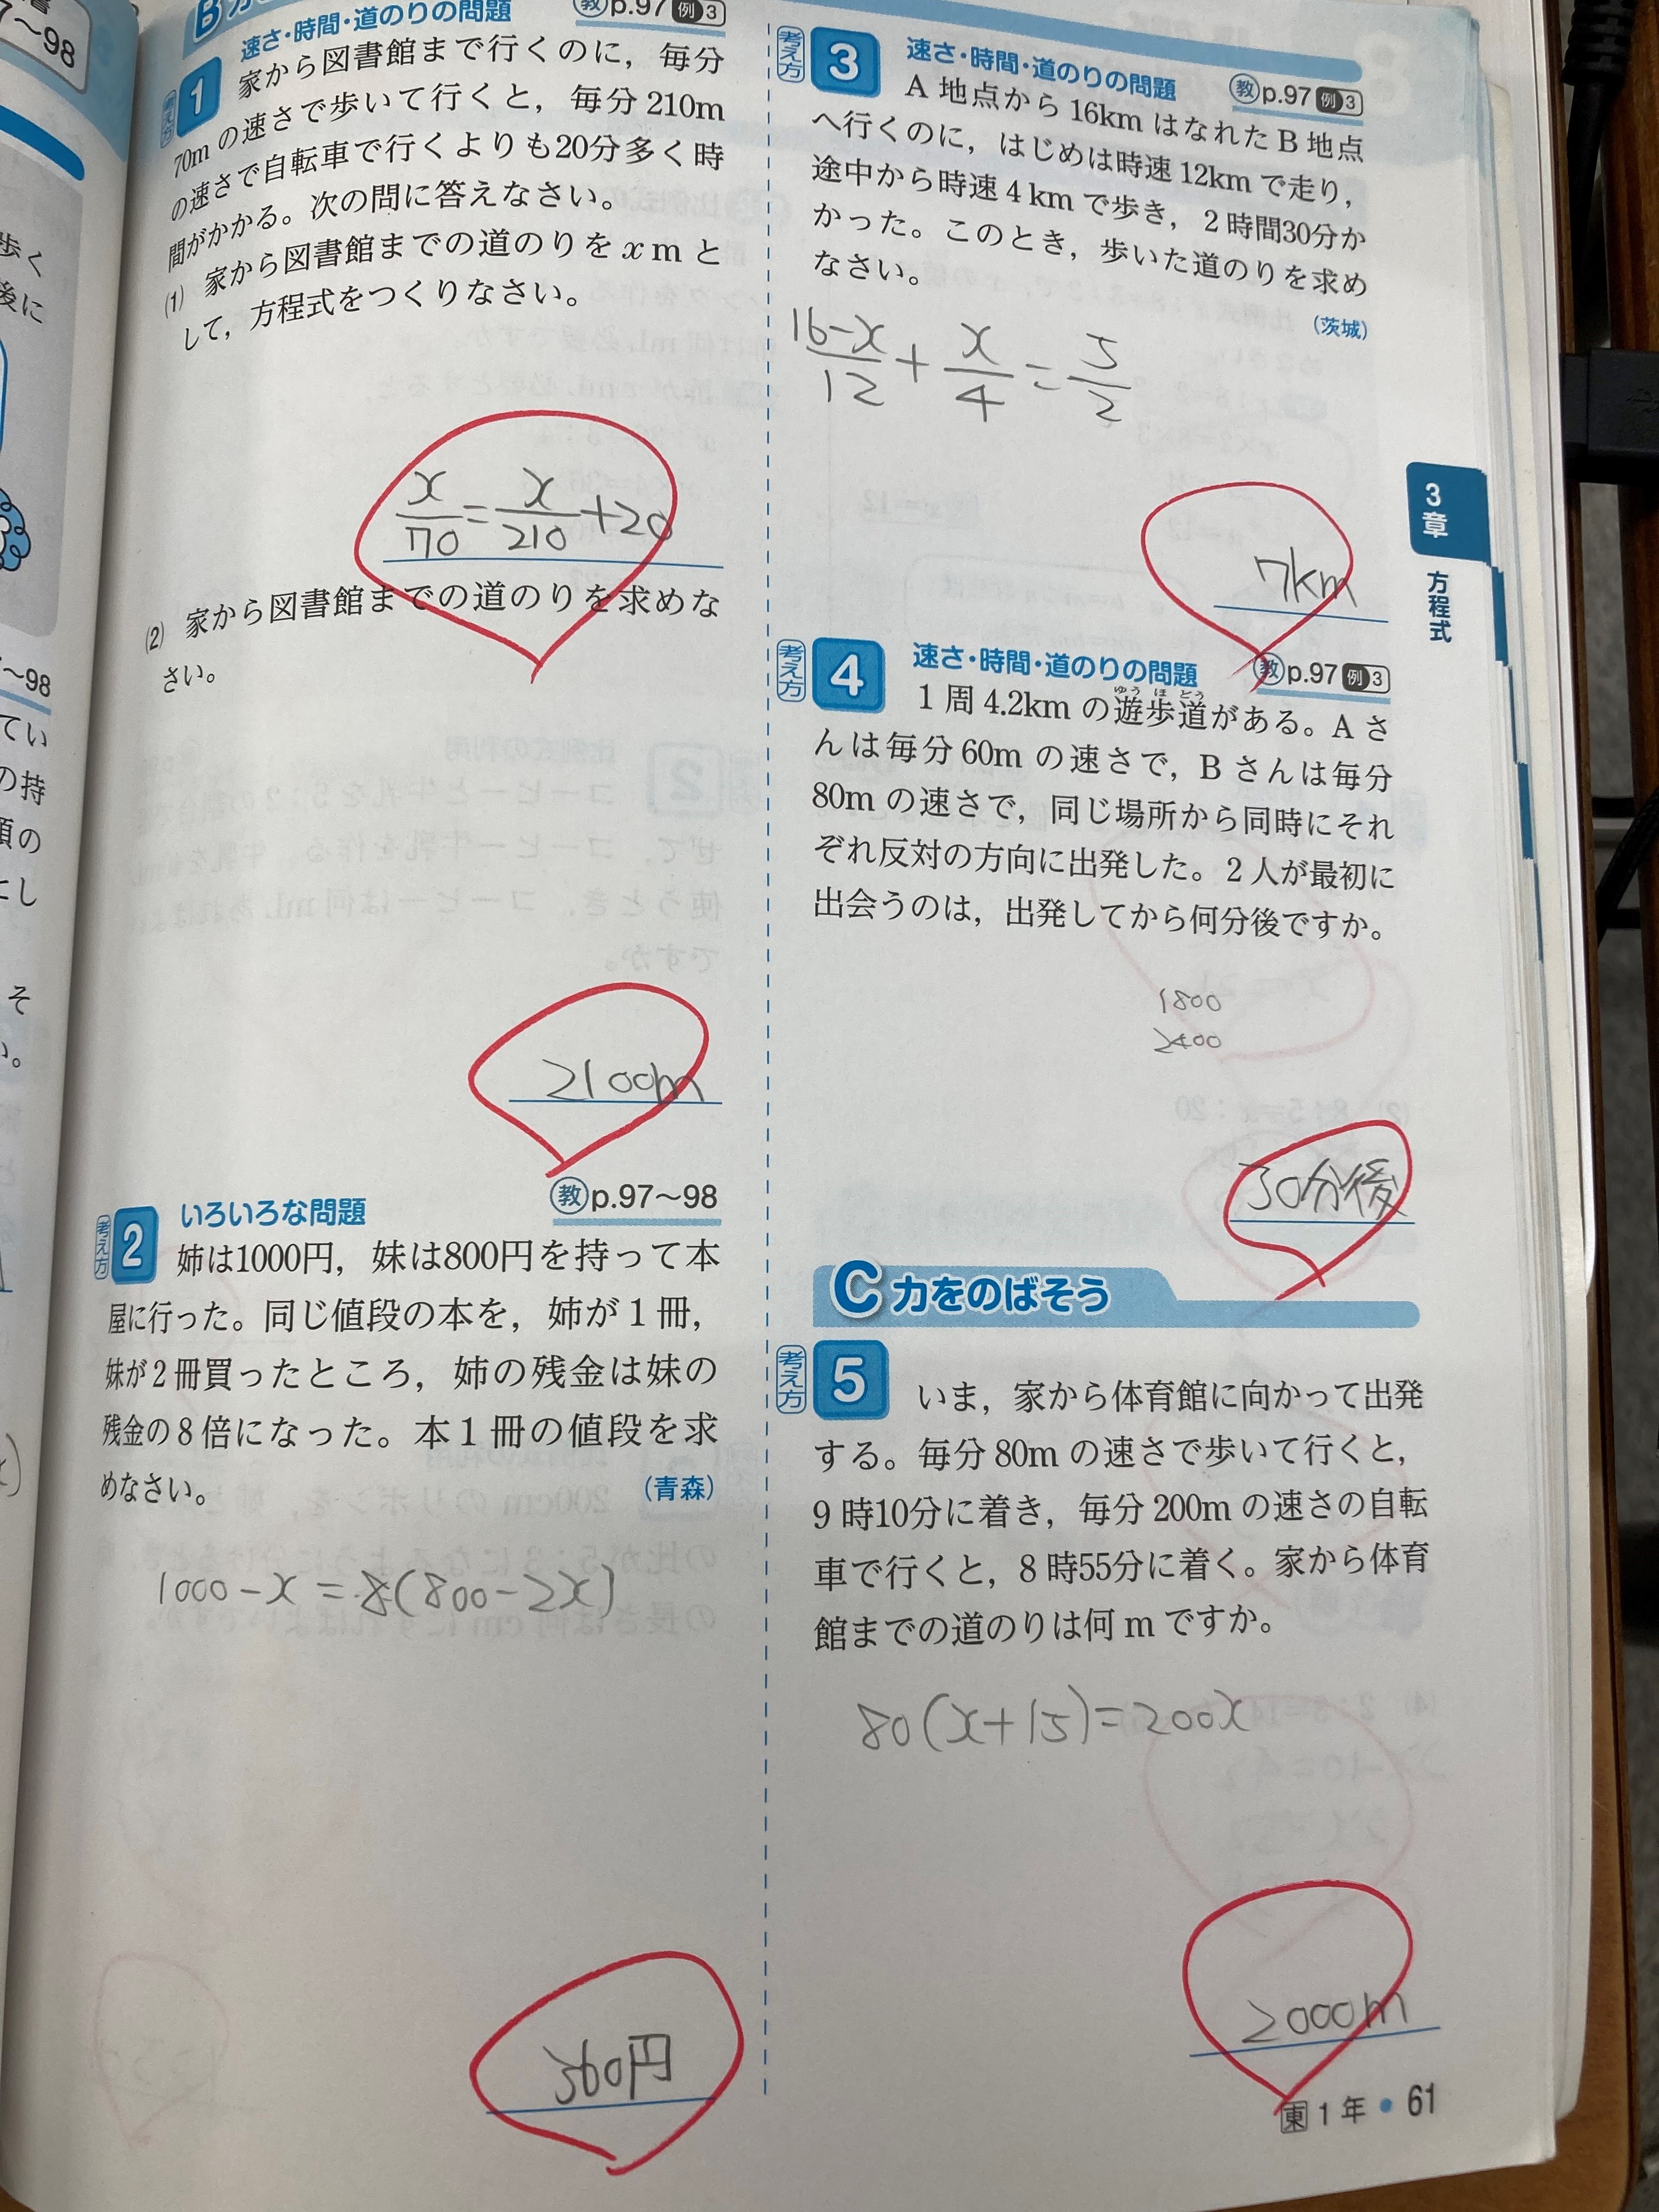 ~98
歩く
後に
~98
てい
の持
題の
とし
そ
い。
B
速さ・時間・道のりの問題
教p.97 例3
考え方
1
家から図書館まで行くのに，毎分
70mの速さで歩いて行くと，毎分210m
の速さで自転車で行くよりも20分多く時
間がかかる。次の問に答えなさい。
(1) 家から図書館までの道のりをxmと
して，方程式をつくりなさい。
x/70=x/210+20
(2) 家から図書館までの道のりを求めな
さい。
2100m
いろいろな問題
教p.97～98
考え方
2
姉は1000円，妹は800円を持って本
屋に行った。同じ値段の本を，姉が1冊，
妹が2冊買ったところ，姉の残金は妹の
残金の8倍になった。本1冊の値段を求
めなさい。
(青森)
1000-x=8(800-2x)
360円
考え方
3
速さ・時間・道のりの問題
教p.97 例3
A地点から16kmはなれたB地点
へ行くのに，はじめは時速12kmで走り，
途中から時速4kmで歩き，2時間30分か
かった。このとき，歩いた道のりを求め
なさい。
(茨城)
16-x/12+x/4=5/2
7km
考え方
4
速さ・時間・道のりの問題
教p.97 例3
ゆうほどう
1周4.2kmの遊歩道がある。Aさ
んは毎分60mの速さで，Bさんは毎分
80mの速さで，同じ場所から同時にそれ
ぞれ反対の方向に出発した。2人が最初に
出会うのは，出発してから何分後ですか。
1800
2400
30分後
C 力をのばそう
考え方
5
いま，家から体育館に向かって出発
する。毎分80mの速さで歩いて行くと，
9時10分に着き，毎分200mの速さの自転
車で行くと，8時55分に着く。家から体育
館までの道のりは何mですか。
80(x+15)=200x
2000m
3章
方程式
東1年・61